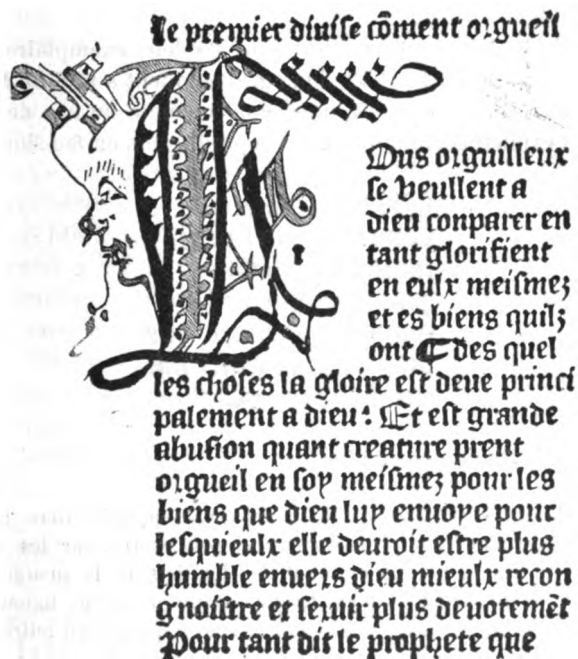 Le premier diuise cõment orgueil
Ous orguilleux
se veullent a
dieu conparer en
tant glorifient
en eulx meismez
et es biens quilz
ont ⸿ des quel
les choses la gloire est deue princi
palement a dieu⁘ Et est grande
abusion quant creature prent
orgueil en soy meismez pour les
biens que dieu luy enuoye pour
lesquieulx elle deuroit estre plus
humble enuers dieu mieulx recon
gnoistre et seruir plus deuotemẽt
Pour tant dit le prophete que